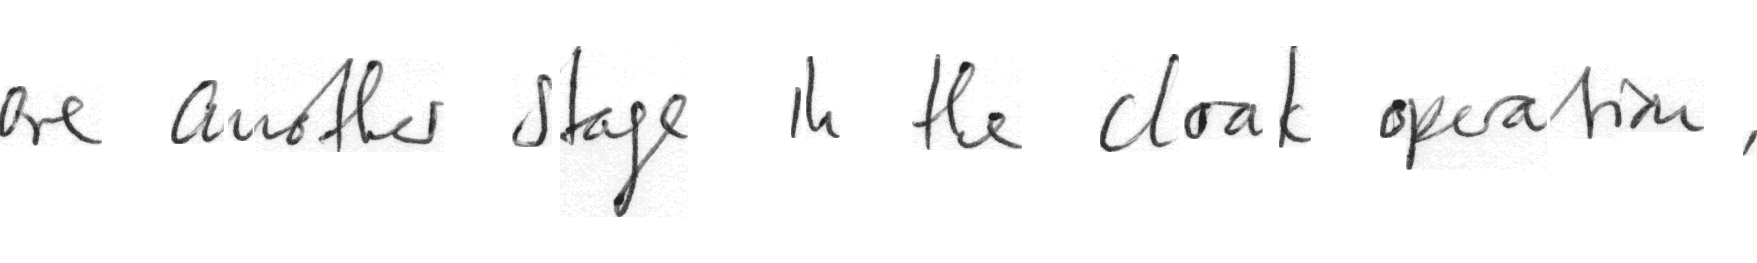 are another stage in the cloak operation,